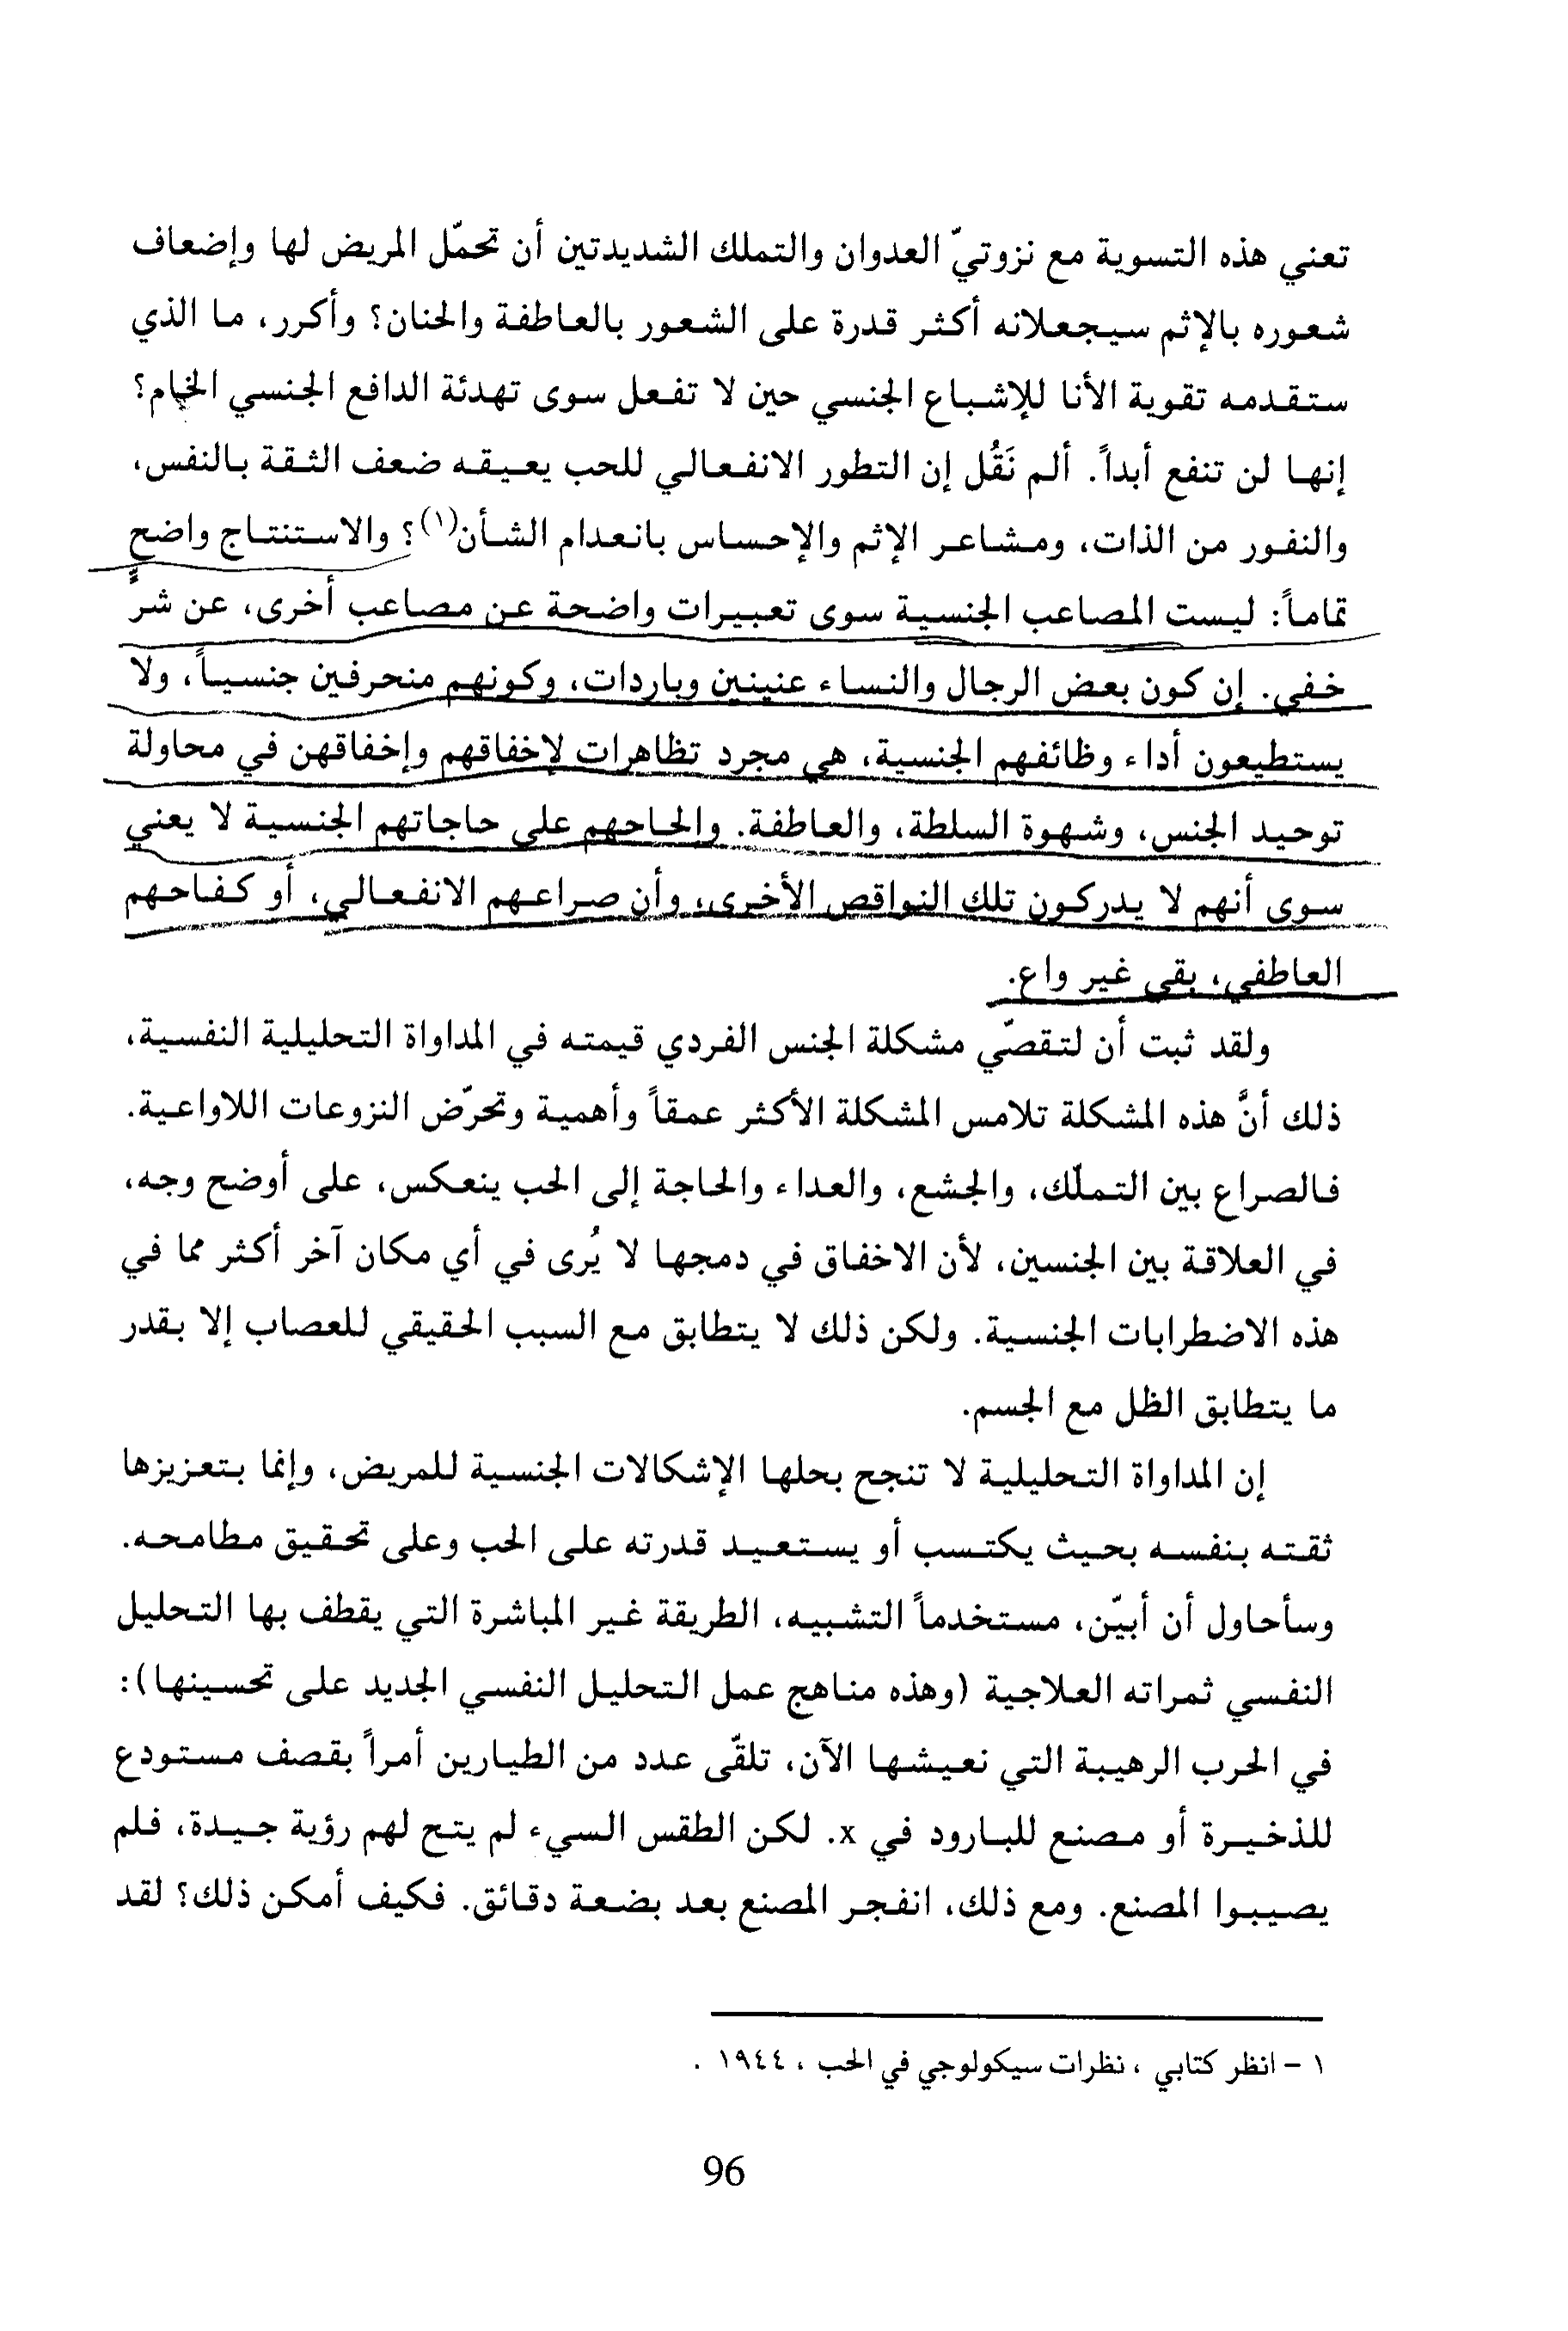 تعني هذه التسوية مع نزوتيّ العدوان والتملك الشديدتين أن تحمّل المريض لها وإضعاف
شعوره بالإثم سيجعلانه أكثر قدرة على الشعور بالعاطفة والحنان؟ وأكرر، ما الذي
ستقدمه تقوية الأنا للإشباع الجنسي حين لا تفعل سوى تهدئة الدافع الجنسي الخام؟
إنها لن تنفع أبداً. ألم نَقُل إن التطور الانفعالي للحب يعيقه ضعف الثقة بالنفس،
والنفور من الذات، ومشاعر الإثم والإحساس بانعدام الشأن(١)؟ والاستنتاج واضح
تماماً: ليست المصاعب الجنسية سوى تعبيرات واضحة عن مصاعب أخرى، عن شرٍّ
خفي. إن كون بعض الرجال والنساء عنينين وباردات، وكونهم منحرفين جنسياً، ولا
يستطيعون أداء وظائفهم الجنسية، هي مجرد تظاهرات لإخفاقهم وإخفاقهن في محاولة
توحيد الجنس، وشهوة السلطة، والعاطفة. وإلحاحهم على حاجاتهم الجنسية لا يعني
سوى أنهم لا يدركون تلك النواقص الأخرى، وأن صراعهم الانفعالي، أو كفاحهم
العاطفي، بقي غير واع.
ولقد ثبت أن لتقصّي مشكلة الجنس الفردي قيمته في المداواة التحليلية النفسية،
ذلك أنَّ هذه المشكلة تلامس المشكلة الأكثر عمقاً وأهمية وتحرّض النزوعات اللاواعية.
فالصراع بين التملّك، والجشع، والعداء والحاجة إلى الحب ينعكس، على أوضح وجه،
في العلاقة بين الجنسين، لأن الاخفاق في دمجها لا يُرى في أي مكان آخر أكثر مما في
هذه الاضطرابات الجنسية. ولكن ذلك لا يتطابق مع السبب الحقيقي للعصاب إلا بقدر
ما يتطابق الظل مع الجسم.
إن المداواة التحليلية لا تنجح بحلها الإشكالات الجنسية للمريض، وإنما بتعزيزها
ثقته بنفسه بحيث يكتسب أو يستعيد قدرته على الحب وعلى تحقيق مطامحه.
وسأحاول أن أبيّن، مستخدماً التشبيه، الطريقة غير المباشرة التي يقطف بها التحليل
النفسي ثمراته العلاجية (وهذه مناهج عمل التحليل النفسي الجديد على تحسينها):
في الحرب الرهيبة التي نعيشها الآن، تلقّى عدد من الطيارين أمراً بقصف مستودع
للذخيرة أو مصنع للبارود في x. لكن الطقس السيء لم يتح لهم رؤية جيدة، فلم
يصيبوا المصنع. ومع ذلك، انفجر المصنع بعد بضعة دقائق. فكيف أمكن ذلك؟ لقد
١ - انظر كتابي ، نظرات سيكولوجي في الحب ، ١٩٤٤ .
96